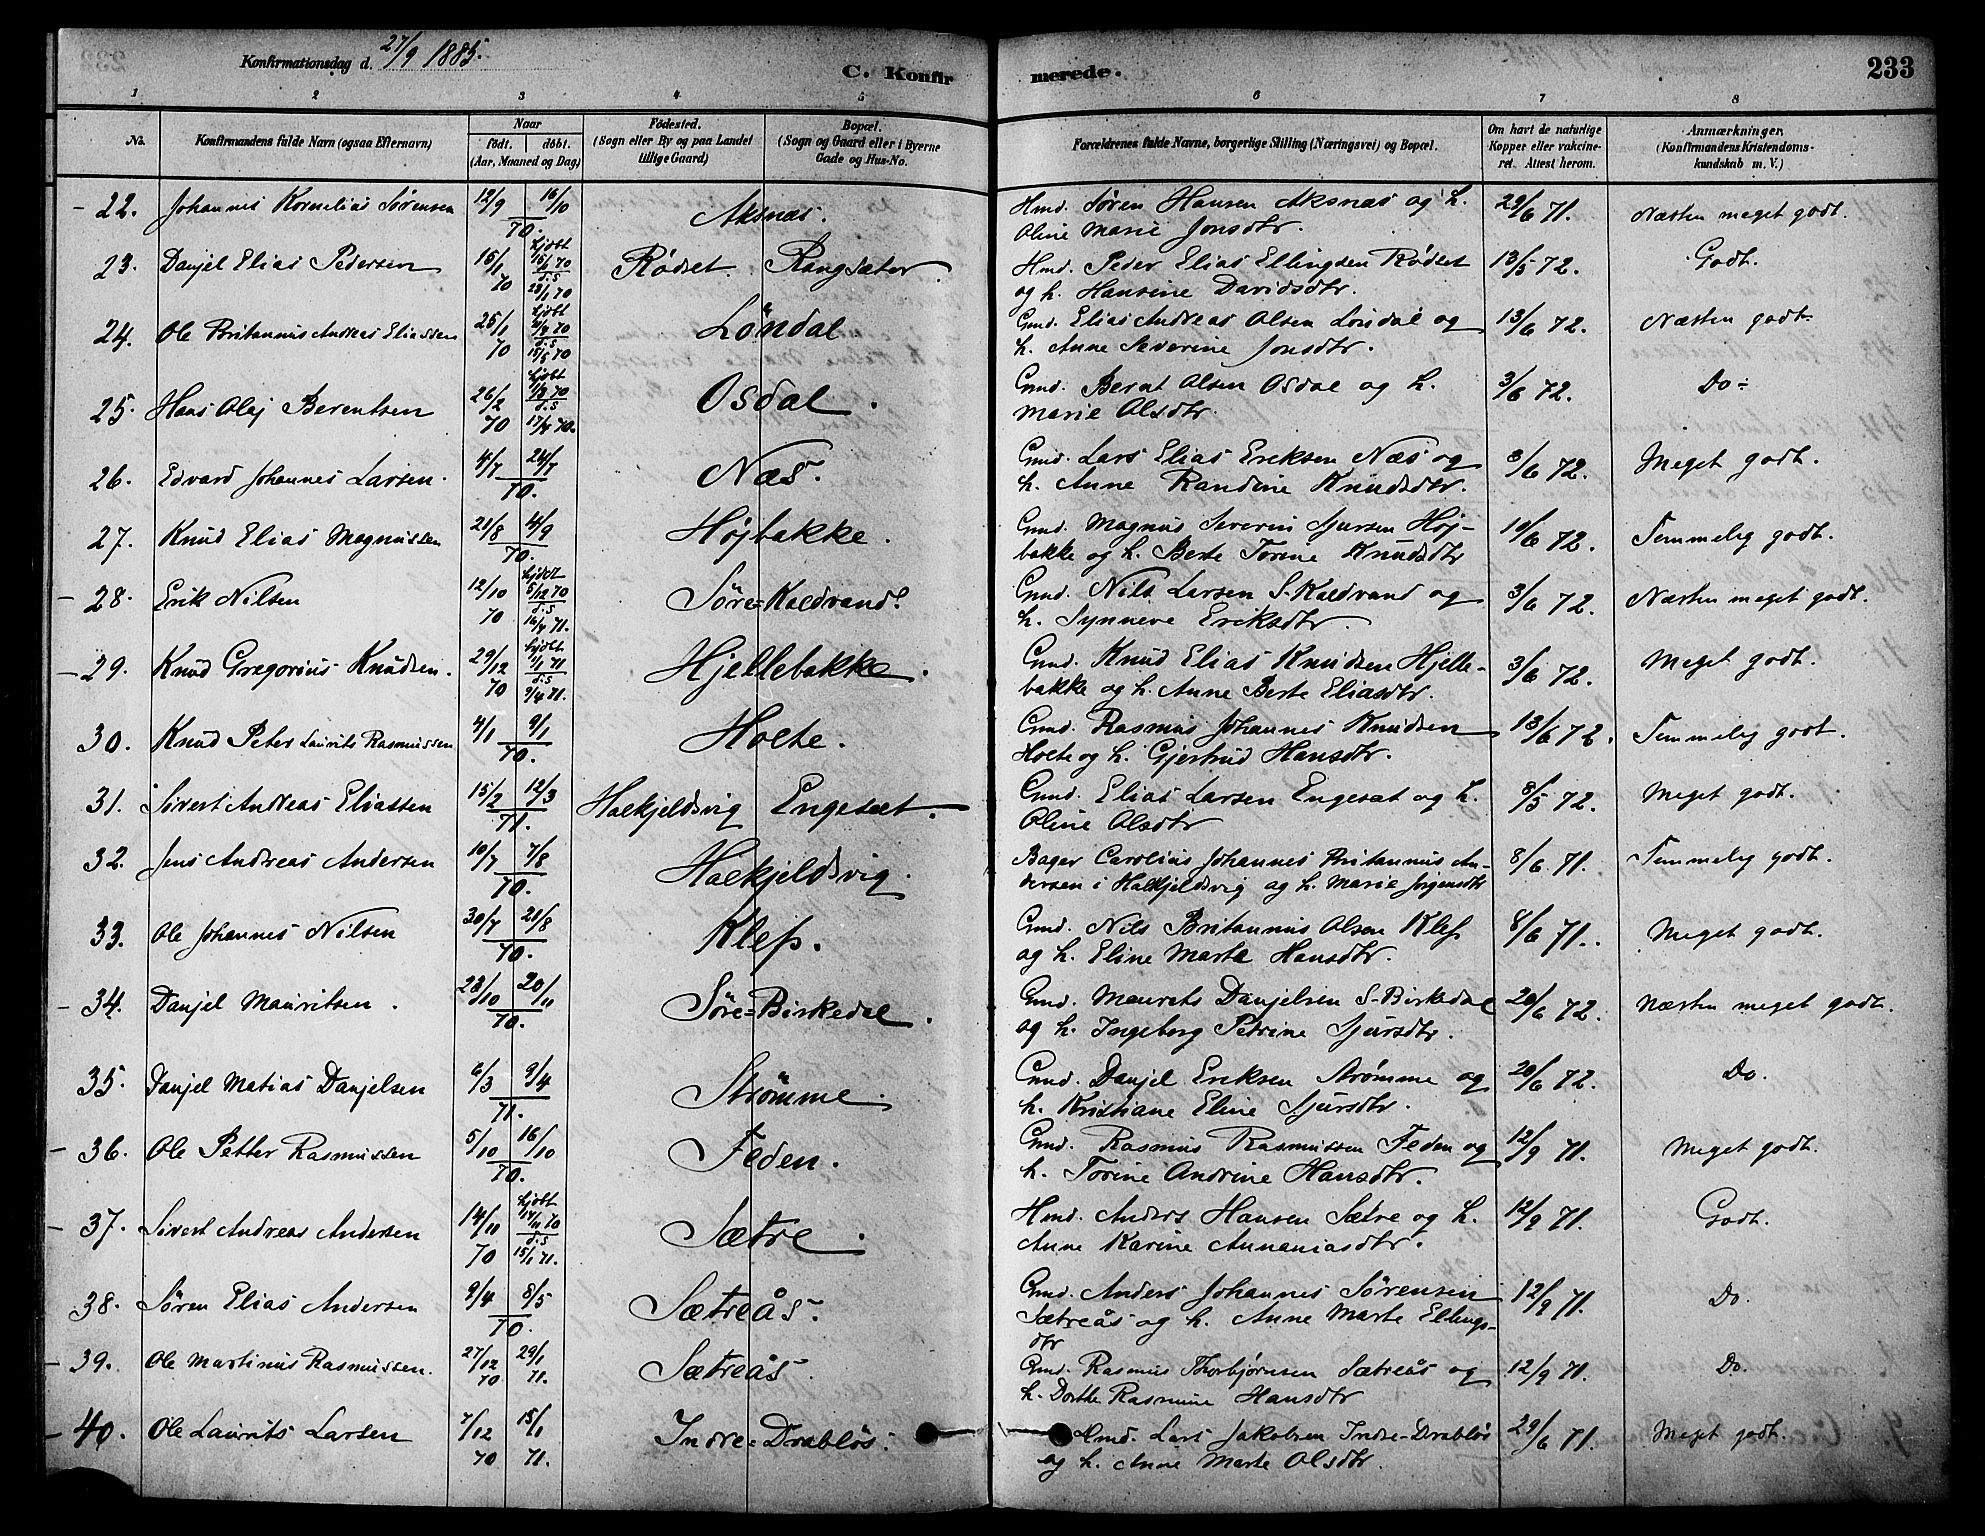 Konfirmationsdag d. 27/9 1885.
C. Konfirmerede.
233
1 2 3 4 5 6 7 8
No.
Konfirmandens fulde Navn (ogsaa Efternavn)
Naar
födt. döbt.
(Aar, Maaned og Dag)
Födested.
(Sogn eller By og paa Landet
tillige Gaard)
Bopæl.
(Sogn og Gaard eller i Byerne
Gade og Hus-No.
Forældrenes fulde Navne, borgerlige Stilling (Næringsvei) og Bopæl.
Om havt de naturlige
Kopper eller vakcine-
ret. Attest herom.
Anmærkninger,
(Konfirmandens Kristendoms-
kundskab m. V.)
22. Johannes Kornelias Sørensen 12/9 16/10 70. Aksnæs. Hmd. Søren Hansen Aksnæs og h. 29/6 71. Næsten meget godt.
Oline Marie Jonsdtr.
23. Danjel Elias Pedersen 15/1 70 hjdbt 70 d.s 23/1 70 Rødset. Rangsæter. Hmd. Peder Elias Ellingsen Rødset 13/5 72. Godt.
og h. Hansine Davidsdtr.
24. Ole Britannus Andreas Eliassen 25/1 70 hjdbt 70 d.s 15/5 70 Löndal Gmd. Elias Andreas Olsen Løndal og 13/6 72. Næsten godt.
h. Anne Severine Jonsdtr.
25. Hans Olaj Berentsen 26/2 70 hjdbt 70 d.s 17/4 70. Osdal. Gmd. Bernt Olsen Osdal og h. 3/6 72. Do
Marie Olsdtr.
26. Edvard Johannes Larsen. 4/7 24/7 70. Næs. Gmd. Lars Elias Eriksen Næs og 3/6 72. Meget godt.
h. Anne Randine Knudsdtr.
27. Knud Elias Magnussen 21/8 4/9 70. Højbakke. Gmd. Magnus Severin Sjursen Høj- 10/6 72. Temmelig godt.
bakke og h. Berte Torine Knudsdtr
28. Erik Nilsen 12/10 70 hjdbt 5/12 70 d.s 16/4 71. Søre=Kaldvand. Gmd. Nils Larsen S-Kaldvand og 3/6 72. Næsten meget godt.
h. Synneve Eriksdtr.
29. Knud Gregorius Knudsen. 29/12 70 hjdbt 1/1 71 d.s 9/4 71. Hjellebakke. Gmd. Knud Elias Knudsen Hjelle- 3/6 72. Meget godt.
bakke og h. Anne Berte Eliasdtr.
30. Knud Peter Laurits Rasmussen 4/1 9/1 70. Holte. Gmd. Rasmus Johannes Knudsen 13/6 72. Temmelig godt.
Holte og h. Gjertrud Hansdtr.
31. Sivert Andreas Eliassen 15/2 12/3 71. Halkjeldsvig Engesæt. Gmd. Elias Larsen Engesæt og h. 8/5 72. Meget godt.
Oline Olsdtr
32. Jens Andreas Andersen 10/7 7/8 70. Halkjeldsvig. Bager Carolius Johannes Britannus An- 8/6 71. Temmelig godt.
dersen i Halkjeldsvig og h. Marie Jørgensdtr
33. Ole Johannes Nilsen 30/7 21/8 70. Klep. Gmd. Nils Britannus Olsen Klep 8/6 71. Meget godt.
og h. Eline Marta Hansdtr.
34. Danjel Mauritsen. 23/10 20/11 70. Søre=Birkedal. Gmd. Maurits Danjelsen S-Birkedal 20/6 72. Næsten meget godt.
og h. Ingeborg Petrine Sjursdtr.
35. Danjel Matias Danjelsen 6/3 9/4 71. Strömme. Gmd. Danjel Eriksen Strømme og 20/6 72. Do.
h. Kristiane Eline Sjursdtr.
36. Ole Petter Rasmussen 5/10 16/10 70. Feden. Gmd. Rasmus Rasmussen Feden og 12/9 71. Meget godt.
h. Torine Andrine Hansdtr.
37. Sivert Andreas Andersen 14/10 70 hjdbt 70 d.s 15/1 71. Sætre. Hmd. Anders Hansen Sætre og h. 12/9 71. Godt.
Anne Karine Annaniasdtr.
38. Søren Elias Andersen 9/4 8/5 70. Sætreås. Gmd. Anders Johannes Sørensen 12/9 71. Do.
Sætreås og h. Anne Marte Ellings-
dtr
39. Ole Martinus Rasmussen. 27/12 70 29/1 71. Sætreås. Gmd. Rasmus Thorbjørnsen Sætreås og 12/9 71. Do.
h. Dorthe Rasmine Hansdtr
40. Ole Laurits Larsen 7/12 70 15/1 71. Indre=Drabløs. Hmd. Lars Jakobsen Indre-Drabløs 29/6 71. Meget godt.
og h. Anne Marte Olsdtr.